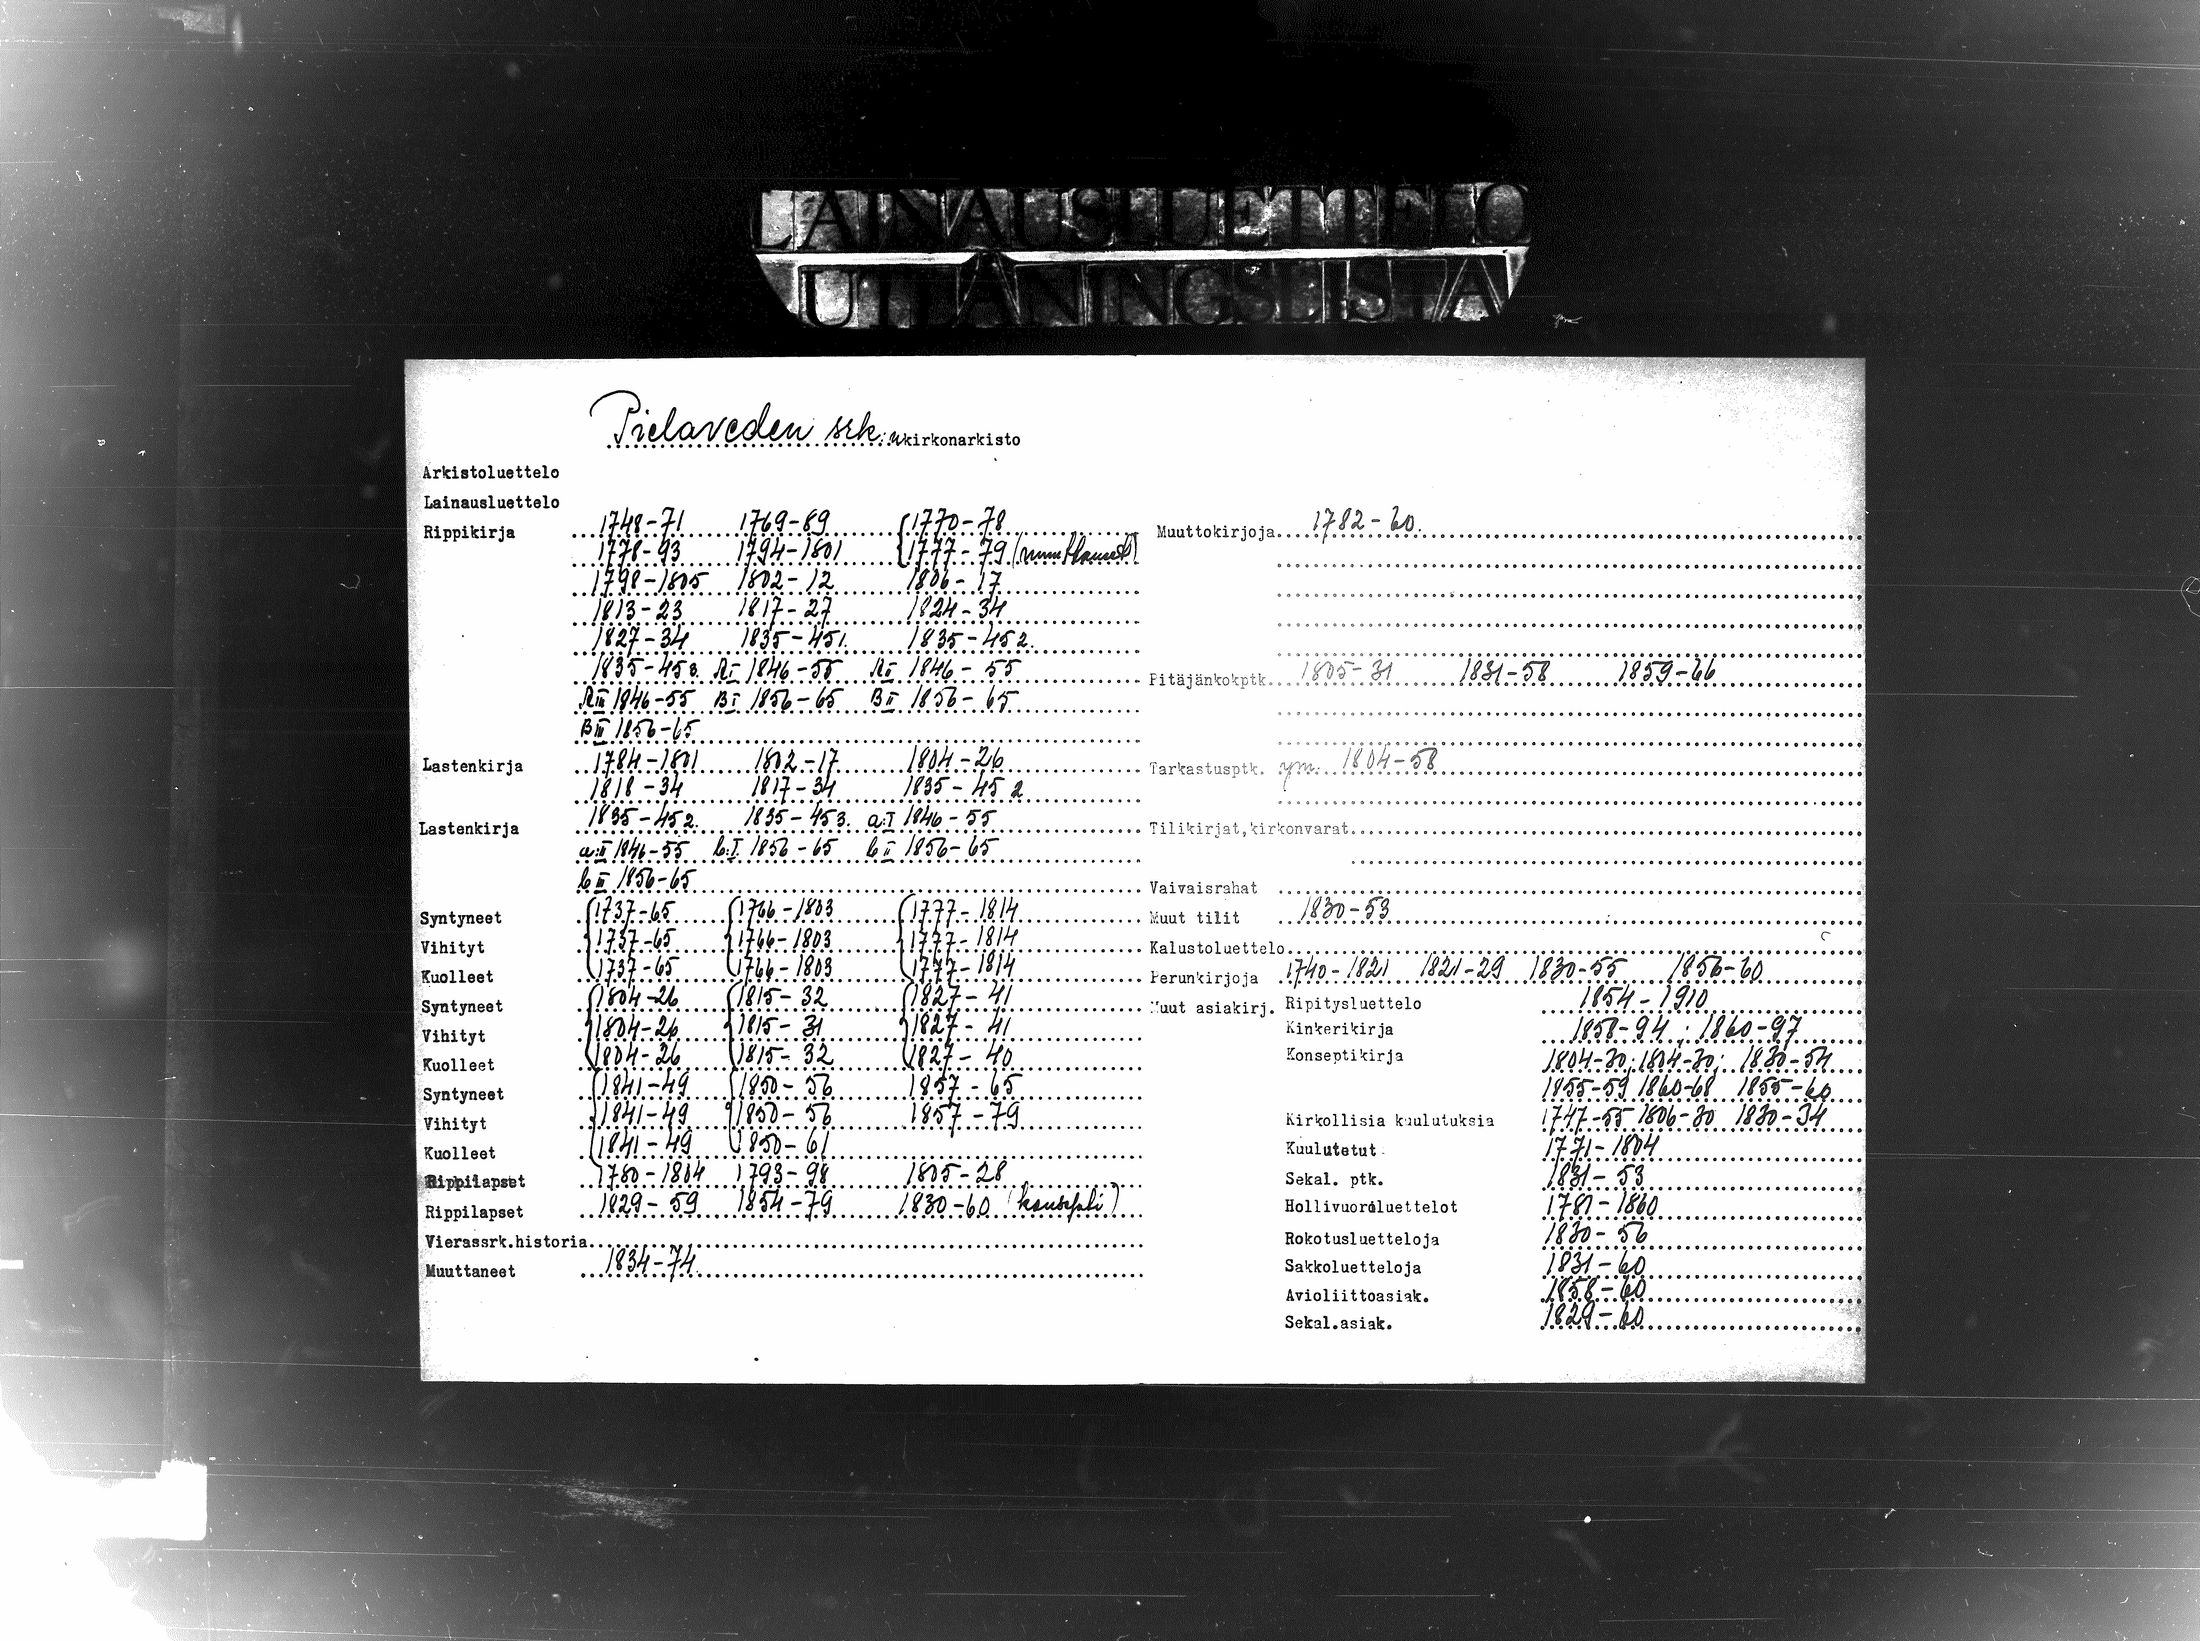 LAINAUSLUETTELO
UTLÅNINGSLISTA
Pielaveden srk:n kirkonarkisto
Arkistoluettelo
Lainausluettelo
Rippikirja 1748-71 1769-89 1770-78
1778-93 1794-1801 1777-79
1798-1805 1802-12 1806-17
1813-23 1817-27 1824-34
1827-34 1835-45 1. 1835-45 2.
1835-45 3. AI 1846-55 AII 1846-55
AIII 1846-55 BI 1856-65 BII 1856-65
BIII 1856-65
Lastenkirja 1784-1801 1802-17 1804-26
1818-34 1817-34 1835-45 2
Lastenkirja 1835-45 2. 1835-45 3. a:I 1846-55
a:II 1846-55 b:I 1856-65 b II 1856-65
b III 1856-65
Syntyneet 1737-65 1766-1803 1777-1814
Vihityt 1737-65 1766-1803 1777-1814
Kuolleet 1737-65 1766-1803 1777-1814
Syntyneet 1804-26 1815-32 1827-41
Vihityt 1804-26 1815-31 1827-41
Kuolleet 1804-26 1815-32 1827-40
Syntyneet 1841-49 1850-56 1857-65
Vihityt 1841-49 1850-56 1857-79
Kuolleet 1841-49 1850-61
Rippilapset 1780-1804 1793-98 1805-28
Rippilapset 1829-59 1854-79 1830-60 (konsepti)
Vierassrk.historia
Muuttaneet 1834-74
Muuttokirjoja 1782-60.
Pitäjänkokptk. 1805-31 1831-58 1859-66
Tarkastusptk. ym. 1804-58
Tilikirjat,kirkonvarat
Vaivaisrahat
Muut tilit 1830-53
Kalustoluettelo
Perunkirjoja 1740-1821 1821-29 1830-55 1856-60
Muut asiakirj. Ripitysluettelo 1854-1910
Kinkerikirja 1858-94 ; 1860-97
Konseptikirja 1804-30; 1804-30; 1830-54
1855-59 1860-68 1855-60
Kirkollisia kuulutuksia 1747-55 1806-30 1830-34
Kuulutetut 1771-1804
Sekal. ptk. 1831-53
Hollivuoroluettelot 1781-1860
Rokotusluetteloja 1830-56
Sakkoluetteloja 1831-60
Avioliittoasiak. 1858-60
Sekal.asiak. 1829-60